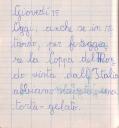 Giovedì 15
Oggi, anche se in ri
tardo, per festeggia
re la coppa del Mon
do vinta dall'Italia
abbiamo mangiato una
torta-gelato.